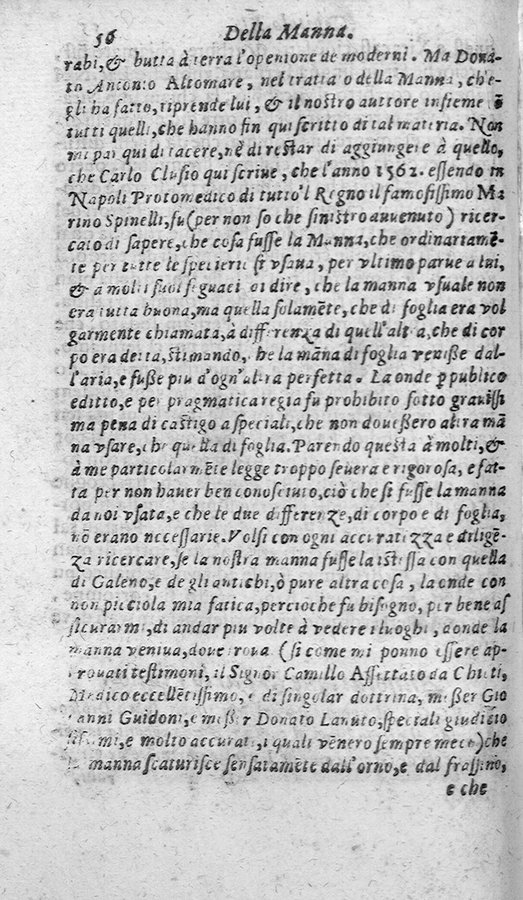 56 Della Manna.
rabi,& butta à terra l'openione de moderni. Ma Dona-
to Antonio Altomare, nel tratta o della Manna, ch'e-
gli ha fatto, riprende lui, & il nostro auttore insieme cõ
tutti quelli, che hanno fin qui scritto di tal materia. Non
mi par qui di tacere, nè di restar di aggiungere à quello,
che Carlo Clusio qui scriue, che l'anno 1562. essendo in
Napoli Protomedico di tutto'l Regno il famosissimo Ma
rino Spinelli, fu (per non so che sinistro auuenuto) ricer-
cato di sapere, che cosa fusse la Manna, che ordinariamẽ-
te per tutte le specierie si vsaua, per vltimo parue a lui,
& a molti suoi seguaci di dire, che la manna vsuale non
era tutta buona, ma quella solamẽte, che di foglia era vol
garmente chiamata, à differenza di quell'altra, che di cor
po era detta, stimando, che la mãna di foglia venisse dal-
l'aria, e fusse piu d'ogn'altra perfetta. La onde ꝑ publico
editto, e per pragmatica regia fu prohibito sotto grauissi
ma pena di castigo a speciali, che non douessero altra mã
na vsare, che quella di foglia. Parendo questa à molti, &
à me particolarmẽte legge troppo seuera e rigorosa, e fat-
ta per non hauer ben conosciuto, ciò che si fusse la manna
da noi vsata, e che le due differenze, di corpo e di foglia,
nõ erano necessarie. Volsi con ogni accuratezza e diligẽ-
za ricercare, se la nostra manna fusse la istessa con quella
di Galeno, e de gli antichi, ò pure altra cosa, la onde con
non picciola mia fatica, percioche fu bisogno, per bene as
sicurarmi, di andar piu volte à vedere i luoghi, donde la
manna veniua, doue troua (si come mi ponno essere ap-
prouati testimoni, il Signor Camillo Affettato da Chieti,
Medico eccellẽtissimo, e di singolar dottrina, messer Gio
uanni Guidoni, e messer Donato Lanuto, speciali giudicio
sissimi, e molto accurati, i quali vẽnero sempre meco) che
la manna scaturisce sensatamẽte dall'orno, e dal frassino,
e che